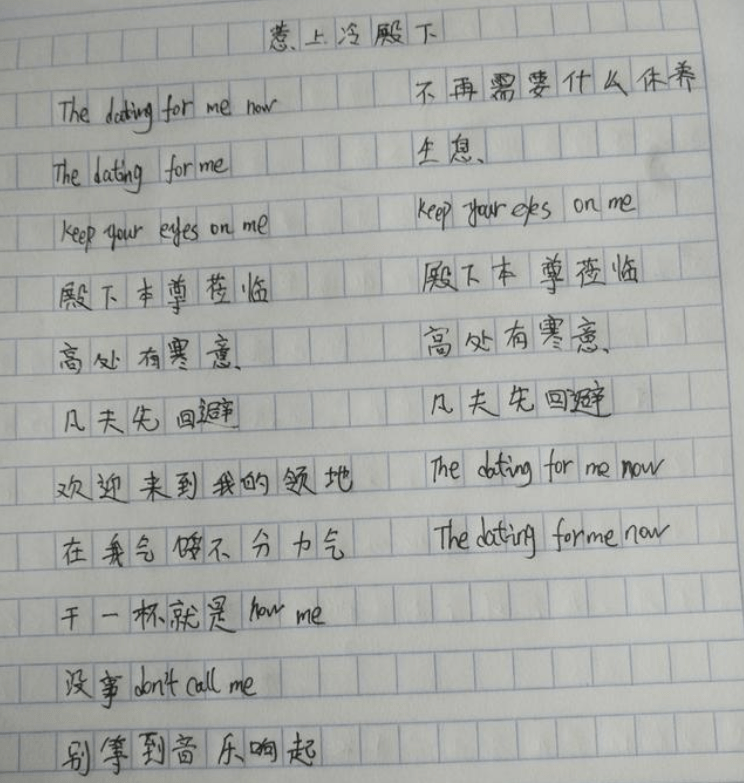 惹上冷殿下
The dating for me now
The dating for me
keep your eyes on me
殿下本尊莅临
高处有寒意
凡夫先回避
欢迎来到我的领地
在我气 不分力气
干一杯就是 how me
没事 don't call me
别等到音乐响起
不再需要什么休养
生息
keep your eyes on me
殿下本尊莅临
高处有寒意
凡夫先回避
The dating for me now
The dating for me now